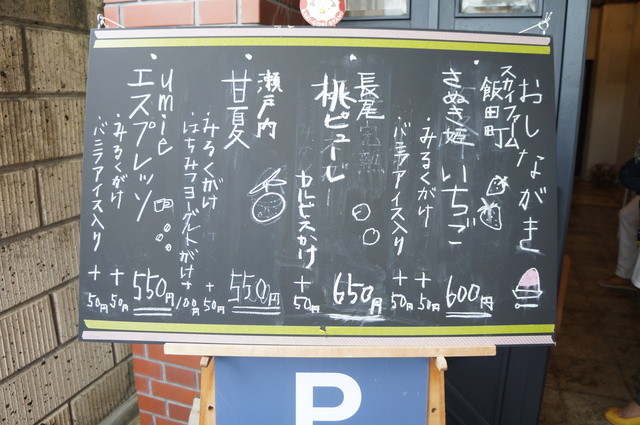 おしながき
スカイファーム
飯田町
さぬき姫いちご
・みるくがけ
+50円
・バニラアイス入り
+50円
600円
長尾
桃ピューレ
カルピスかけ
+50円
650円
瀬戸内
甘夏
・みるくがけ
+50円
・はちみつヨーグルトがけ
+100円
550円
umie
エスプレッソ
・みるくがけ
+50円
・バニラアイス入り
+50円
550円
P